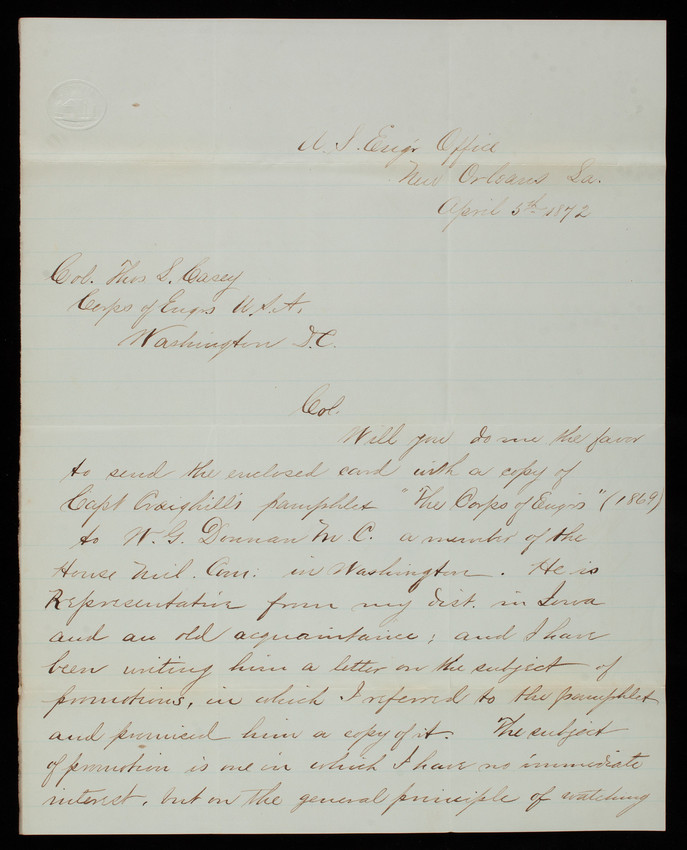 U.S. Engr Office
New Orleans La.
April 5th 1872
Col. Thos L. Casey
Corps of Engrs U.S.A.
Washington D.C.
Col.
Will you do me the favor
to send the enclosed card with a copy of
Capt Craighill's pamphlet "The Corps of Engrs" (1869)
to W. G. Donnan M.C. a member of the
House Mil. Com: in Washington. He is
Representative from my dist. in Iowa
and an old acquaintance; and I have
been writing him a letter on the subject of
promotions, in which I referred to the pamphlet
and promised him a copy of it. The subject
of promotion is one in which I have no immediate
interest, but on the general principle of watching